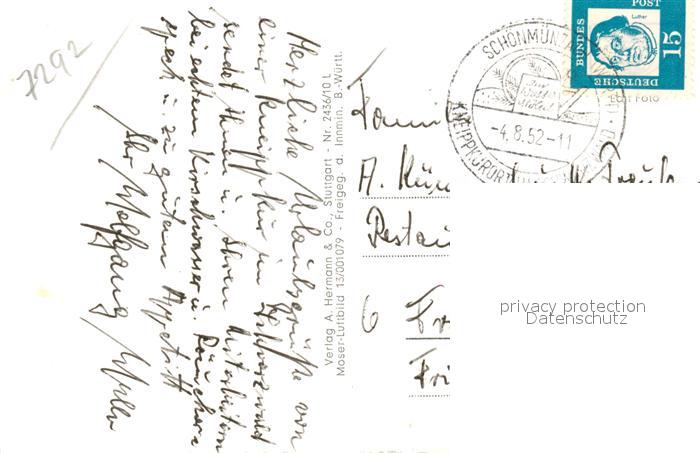 7292
Herzliche Urlaubsgrüße von
einer Kneippkur im Schwarzwald
sendet Ihnen u. Ihren Mitarbeitern
bei echtem Kirschwasser u. Räucher-
speck u. zu gutem Appetitt
Ihr Wolfgang
Verlag A. Hermann & Co., Stuttgart - Nr. 2436/10 L
Moser-Luftbild 13/001079 - Freigeg. d. Innmin. B.-Württ.
SCHÖNMÜNZACH
-4.8.62-11
KNEIPPKURORT
DEUTSCHE
BUNDES
POST
Luther
15
Echt Foto
A.
6
privacy protection
Datenschutz